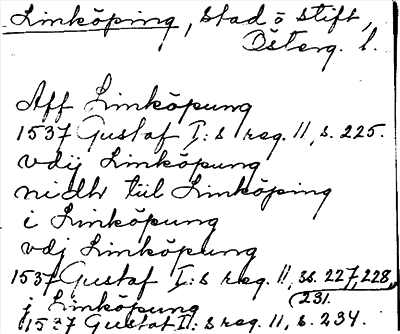 Linköping, stad o stift,
Österg. l.
Aff Limköpung
1537 Gustaf I:s reg. 11, s. 225.
vdij Limköpung
nidhr tiil Limköping
i Limköpung
vdj Limköpung
1537 Gustaf I:s reg. 11, ss. 227, 228,
231.
j Limköpung
1537 Gustaf I:s reg. 11, s. 234.